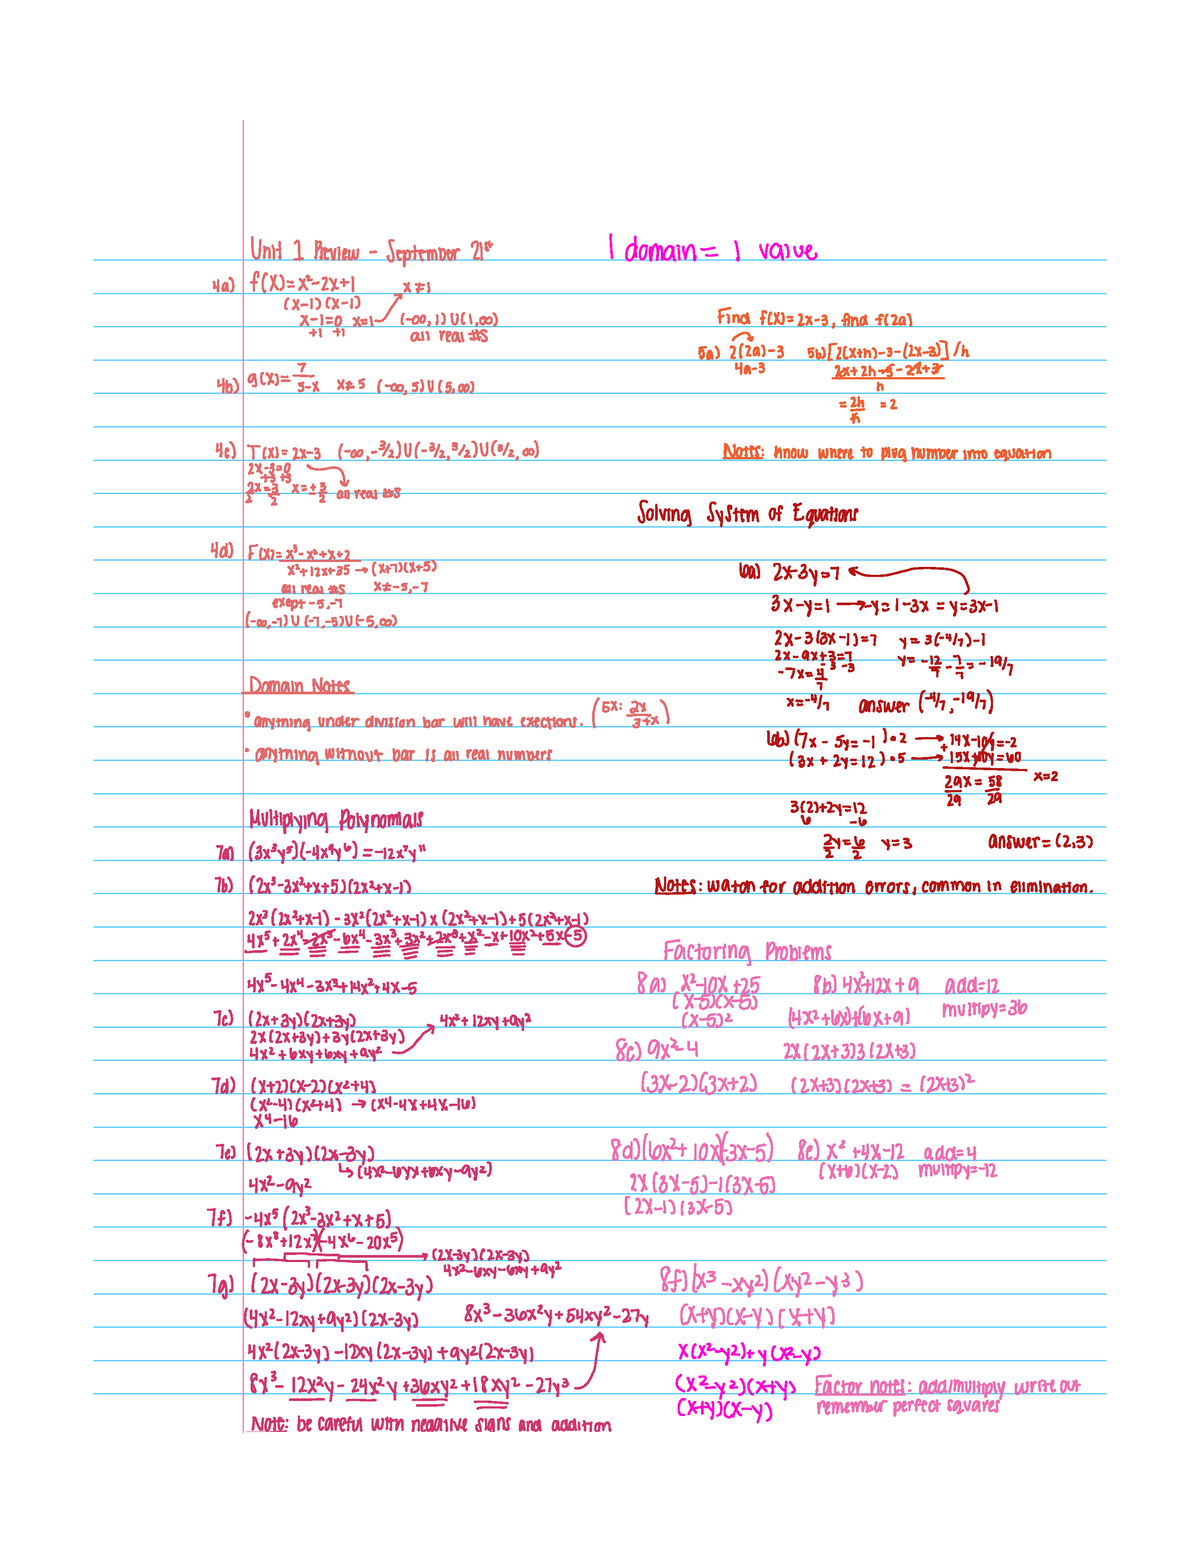 Unit 1 Review - September 21st
4a) f(x)=x²-2x+1 x≠1
(x-1)(x-1)
x-1=0 x=1 (-∞,1)U(1,∞)
+1 +1 all real #s
4b) g(x)=7/5-x x≠5 (-∞,5)U(5,∞)
4c) T(x)=2x-3 (-∞,-3/2)U(-3/2,3/2)U(3/2,∞)
2x-3=0
+3 +3
2x=3 x=±3/2 all real #s
2 2
4d) F(x)=x³-x²+x+2
x²+12x+35→(x+7)(x+5)
all real #s x≠-5,-7
exept -5,-7
(-∞,-7)U(-7,-5)U(-5,∞)
Domain Notes
• anything under division bar will have exections. (5x: 2x/3+x)
• anything without bar is all real numbers
Multiplying Polynomials
7a) (3x³y⁵)(-4x⁴y⁶)=-12x⁷y¹¹
7b) (2x³-3x²+x+5)(2x²+x-1)
2x³(2x²+x-1)-3x²(2x²+x-1)x(2x²+x-1)+5(2x²+x-1)
4x⁵+2x⁴-2x³-6x⁴-3x³+3x²+2x³+x²-x+10x²+5x-5
4x⁵-4x⁴-3x³+14x²+4x-5
7c) (2x+3y)(2x+3y) 4x²+12xy+9y²
2x(2x+3y)+3y(2x+3y)
4x²+6xy+6xy+9y²
7d) (x+2)(x-2)(x²+4)
(x²-4)(x²+4)→(x4-4x+4x-16)
x4-16
7e) (2x+3y)(2x-3y)
↳(4x²-6yx+6xy-9y²)
4x²-9y²
7f) -4x⁵(2x³-3x²+x+5)
(-8x⁸+12x⁷)(-4x⁶-20x⁵)
→(2x-3y)(2x-3y)
4x²-6xy-6xy+9y²
7g) (2x-3y)(2x-3y)(2x-3y)
(4x²-12xy+9y²)(2x-3y) 8x³-36x²y+54xy²-27y
4x²(2x-3y)-12xy(2x-3y)+9y²(2x-3y)
8x³-12x²y-24x²y+36xy²+18xy²-27y³
Note: be careful with negative signs and addition
1 domain = 1 value
Find f(x)=2x-3, find f(2a)
5a) 2(2a)-3 5b)[2(x+h)-3-(2x-3)]/h
4a-3 2x+2h-3-2x+3
h
=2h/h =2
Notes: know where to plug number into equation
Solving System of Equations
6a) 2x-3y=7
3x-y=1→-y=1-3x=y=3x-1
2x-3(3x-1)=7 y=3(-4/7)-1
2x-9x+3=7 y=-12/7-7/7=-19/7
-3 -3
-7x=4
7
x=-4/7 answer (-4/7,-19/7)
6b) (7x-5y=-1)•2→14x-10y=-2
(3x+2y=12)•5→+15x+10y=60
29x=58 x=2
29 29
3(2)+2y=12
6 -6
2y=6 y=3 answer=(2,3)
2 2
Notes: watch for addition errors, common in elimination.
Factoring Problems
8a) x²-10x+25 8b) 4x²+12x+9 add=12
(x-5)(x-5) multipy=36
(x-5)² (4x²+6x)+(6x+9)
8c) 9x²-4 2x(2x+3)3(2x+3)
(3x-2)(3x+2) (2x+3)(2x+3)=(2x+3)²
8d)(6x²+10x)(-3x-5) 8e) x²+4x-12 add=4
(x+6)(x-2) multipy=-12
2x(3x-5)-1(3x-5)
(2x-1)(3x-5)
8f)(x³-xy²)(xy²-y3)
(x+y)(x-y)(x+y)
x(x²-y²)+y(x²-y)
(x²-y²)(x+y) Factor notes: add/multiply write out
(x+y)(x-y) remember perfect squares